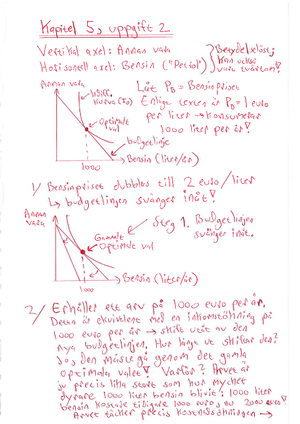 Kapitel 5, uppgift 2
Vertikal axel: Annan vara
Horisontell axel: Bensin ("Petrol")
Betydelselöst;
kan också
vara tvärtom!
Annan vara
Låt PB = Bensinpriset
Enligt texten är PB = 1 euro
per liter → konsumerar
1000 liter per år!
Indiff.
kurva (I0)
Optimalt
val
budgetlinje
Bensin (liter/år)
1000
1/ Bensinpriset dubblas till 2 euro/liter
↳ budgetlinjen svänger inåt!
Annan
vara
Steg 1. Budgetlinjen
svänger inåt.
Gammalt
Optimalt val
Bensin (liter/år)
1000
2/ Erhåller ett arv på 1000 euro per år.
Detta är ekvivalent med en inkomstökning på
1000 euro per år → skift utåt av den
nya budgetlinjen. Hur långt ut skiftar den?
Jo, den måste gå genom det gamla
optimala valet! Varför? Arvet är
ju precis lika stort som hur mycket
dyrare 1000 liter bensin blivit: 1000 liter
bensin kostade tidigare 1000 euro, nu 2000 euro!
Arvet täcker precis kostnadsökningen →